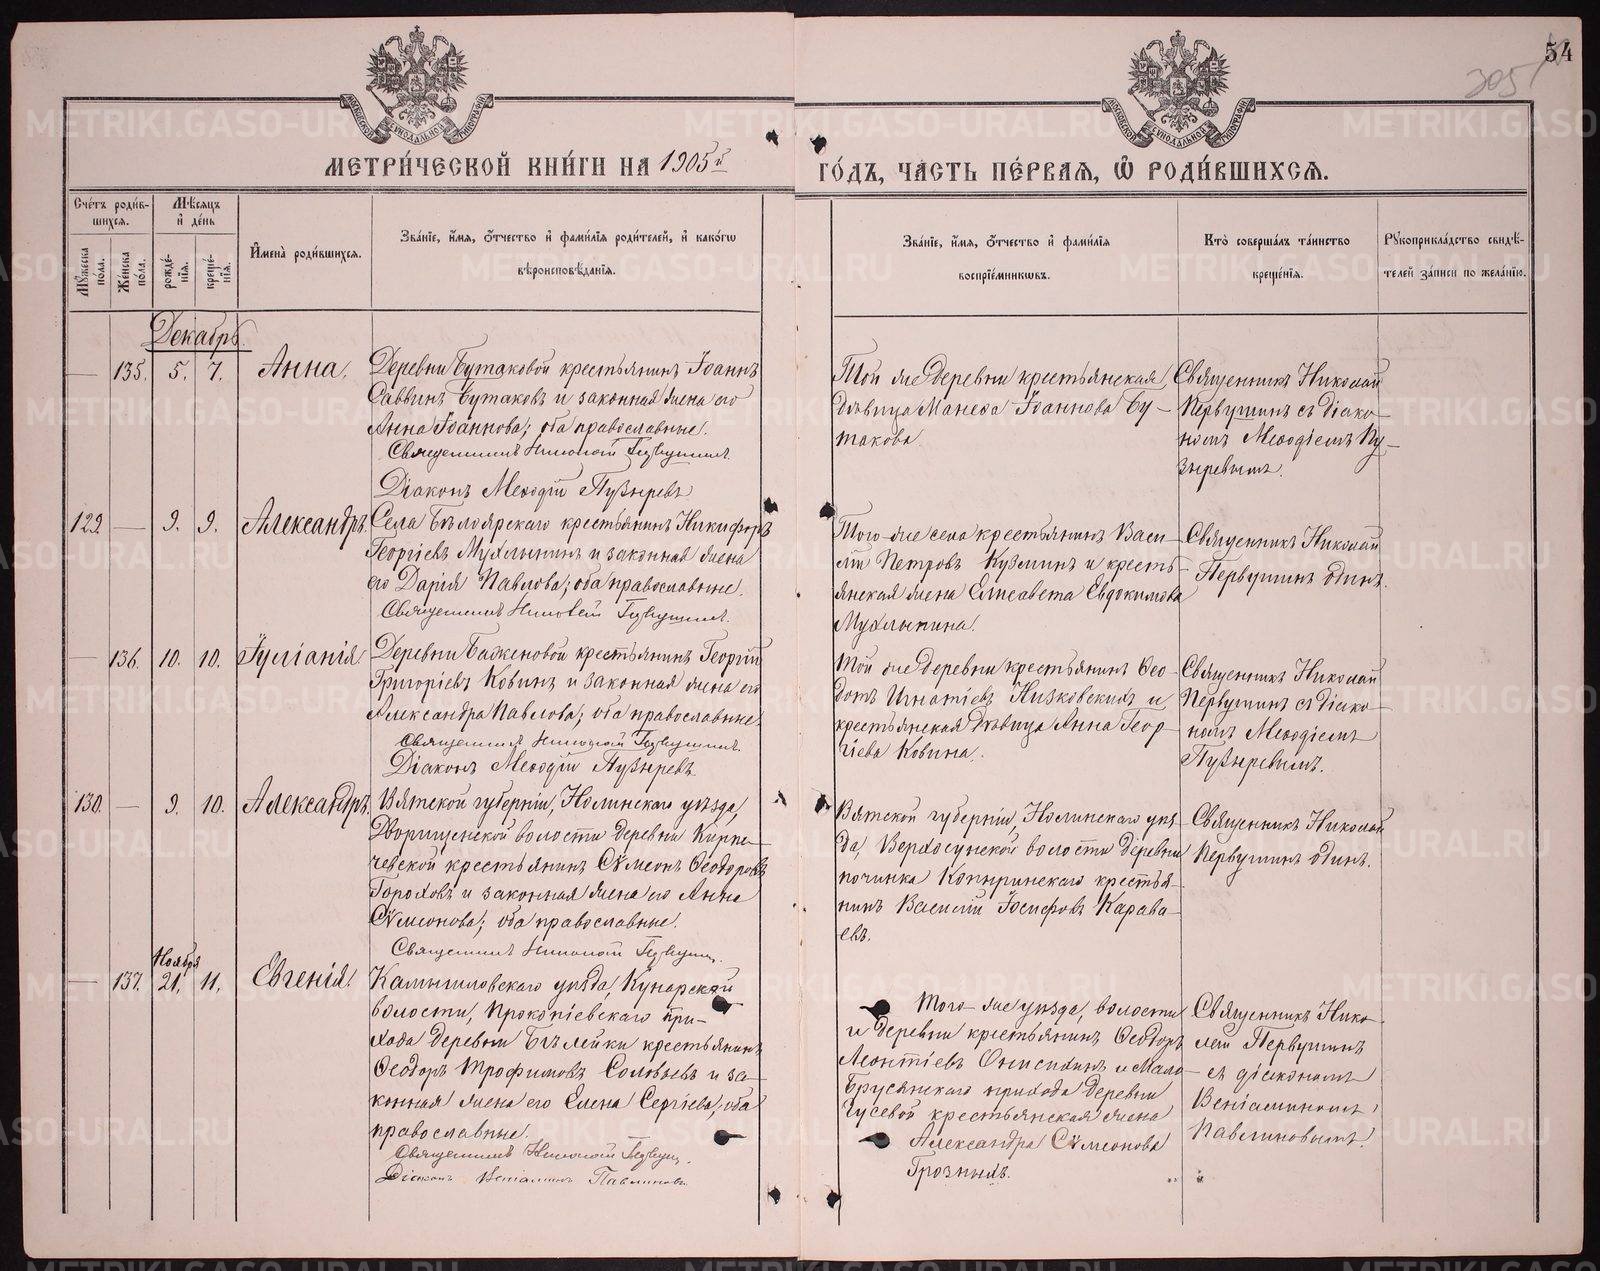 54
305
МОСКОВСКОЙ СѴНОДАЛЬНОЙ ТИПОГРАФІИ
МОСКОВСКОЙ СѴНОДАЛЬНОЙ ТИПОГРАФІИ
МЕТРИ́ЧЕСКОЙ КНИ́ГИ НА 1905й
ГО́ДЪ, ЧАСТЬ ПЕ́РВАЯ, Ѡ РОДИ́ВШИХСЯ.
Сче́тъ роди́в-
шихся.
Мѣ́сяцъ
и҆ де́нь
Мꙋ́жеска
пола.
Же́нска
по́ла.
рожде-
нїя.
креще-
нїя.
И҆мена̀ роди́вшихся.
Зва́нїе, и҆́мя, ѻ҆́тчество и҆ фами́лїя роди́телей, и҆ како́гѡ
вѣроисповѣ́данїя.
Зва́нїе, и҆́мя, ѻ҆́тчество и҆ фами́лїя
воспрїе́мникѡвъ.
Кто̀ соверша́лъ та́инство
креще́нїя.
Рꙋкоприкла́дство свидѣ́-
телей за́писи по жела́нїю.
Декабрь.
— 135. 5. 7. Анна.
Деревни Бутаковой крестьянинъ Іоаннъ
Саввинъ Бутаковъ и законная жена его
Анна Іоаннова; оба православные.
Священникъ Николай Первушинъ.
Діаконъ Меѳодій Пузыревъ
Той же деревни крестьянская
дѣвица Манеѳа Іоаннова Бу-
такова.
Священникъ Николай
Первушинъ съ діако-
номъ Меѳодіемъ Пу-
зыревымъ.
129 — 9. 9. Александръ.
Села Бѣлоярскаго крестьянинъ Никифоръ
Георгіевъ Мухлынинъ и законная жена
его Дарія Павлова; оба православные.
Священникъ Николай Первушинъ.
Того же села крестьянинъ Васи-
лій Петровъ Кузминъ и кресть-
янская жена Елисавета Евдокимова
Мухлынина.
Священникъ Николай
Первушинъ одинъ.
— 136. 10. 10. Іуліанія.
Деревни Баженовой крестьянинъ Георгій
Григоріевъ Ковинъ и законная жена его
Александра Павлова; оба православные
Священникъ Николай Первушинъ.
Діаконъ Меѳодій Пузыревъ.
Той же деревни крестьянинъ Ѳео-
дотъ Игнатіевъ Низковскихъ и
крестьянская дѣвица Анна Геор-
гіева Ковина.
Священникъ Николай
Первушинъ съ діако-
номъ Меѳодіемъ
Пузыревымъ.
130. — 9. 10. Александръ.
Вятской губерніи, Нолинскаго уѣзда,
Дворищенской волости деревни Кирпи-
чевской крестьянинъ Сѵмеонъ Ѳеодоровъ
Гороховъ и законная жена его Анна
Сѵмеонова; оба православные.
Священникъ Николай Первушинъ.
Вятской губерніи, Нолинскаго уѣз-
да, Верхосунской волости деревни
починка Копыринскаго крестья-
нинъ Василій Іосифовъ Карава-
евъ.
Священникъ Николай
Первушинъ одинъ.
Ноября
— 137. 21. 11. Евгенія.
Камышловскаго уѣзда, Кунарской
волости, Прокопіевскаго при-
хода деревни Бѣлейки крестьянинъ
Ѳеодоръ Трофимовъ Соловьевъ и за-
конная жена его Елена Сергіева; оба
православные.
Священникъ Николай Первушинъ.
Діаконъ Веніаминъ Павлиновъ.
Того же уѣзда, волости
и деревни крестьянинъ Ѳеодоръ
Леонтіевъ Онисихинъ и Мало-
Брусянскаго прихода деревни
Гусевой крестьянская жена
Александра Сѵмеонова
Грозныхъ.
Священникъ Нико-
лай Первушинъ
съ діакономъ
Веніаминомъ
Павлиновымъ.
METRIKI.GASO-URAL.RU